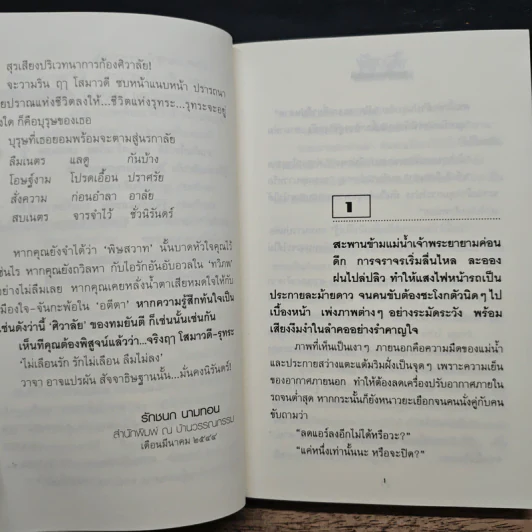 สุรเสียงปริเวทนาการก้องศิวาลัย!
จะวามริน ฤๅ โสมาวดี ซบหน้าแนบหน้า ปรารถนา
ยปราณแห่งชีวิตลงให้...ชีวิตแห่งรุทระ...รุทระจะอยู่
งใด ก็คือบุรุษของเธอ
บุรุษที่เธอยอมพร้อมจะตามสู่นรกาลัย
ลืมเนตร แลดู กันบ้าง
โอษฐ์งาม โปรดเอื้อน ปราศรัย
สั่งความ ก่อนอำลา อาลัย
สบเนตร จารจำไว้ ชั่วนิรันดร์
หากคุณยังจำได้ว่า 'พิษสวาท' นั้นบาดหัวใจคุณไว้
ช่นไร หากคุณยังถวิลหา กับไอรักอันอับอวลใน 'ทวิภพ'
อย่างไม่ลืมเลย หากคุณเคยหลั่งน้ำตาเสียหมดใจให้กับ
เมืองใจ-จันกะพ้อใน 'อตีตา' หากความรู้สึกทันใดเป็น
เช่นดังว่านี้ 'ศิวาลัย' ของทมยันตี ก็เช่นนั้นเช่นกัน
เห็นทีคุณต้องพิสูจน์แล้วว่า...จริงฤๅ โสมาวดี-รุทระ
'ไม่เลือนรัก รักไม่เลือน ลืมไม่ลง'
วาจา อาจแปรผัน สัจจาธิษฐานนั้น...มั่นคงนิรันดร์!
รักชนก นามทอน
สำนักพิมพ์ ณ บ้านวรรณกรรม
เดือนมีนาคม ๒๕๔๔
1
สะพานข้ามแม่น้ำเจ้าพระยายามค่อน
ดึก การจราจรเริ่มลื่นไหล ละออง
ฝนโปรยปลิว ทำให้แสงไฟหน้ารถเป็น
ประกายละม้ายดาว จนคนขับต้องชะโงกตัวนิด ๆ ไป
เบื้องหน้า เพ่งภาพต่างๆ อย่างระมัดระวัง พร้อม
เสียงงึมงำในลำคออย่างรำคาญใจ
ภาพที่เห็นเป็นเงาๆ ภายนอกคือความมืดของแม่น้ำ
และประกายสว่างแตะแต้มริมฝั่งเป็นจุดๆ เพราะความเย็น
ของอากาศภายนอก ทำให้ต้องลดเครื่องปรับอากาศภายใน
รถจนต่ำสุด หากกระนั้นก็ยังหนาวยะเยือกจนคนนั่งคู่กับคน
ขับถามว่า
"ลดแอร์ลงอีกไม่ได้หรือวะ?"
"แค่หนึ่งเท่านั้นนะ หรือจะปิด?"
1